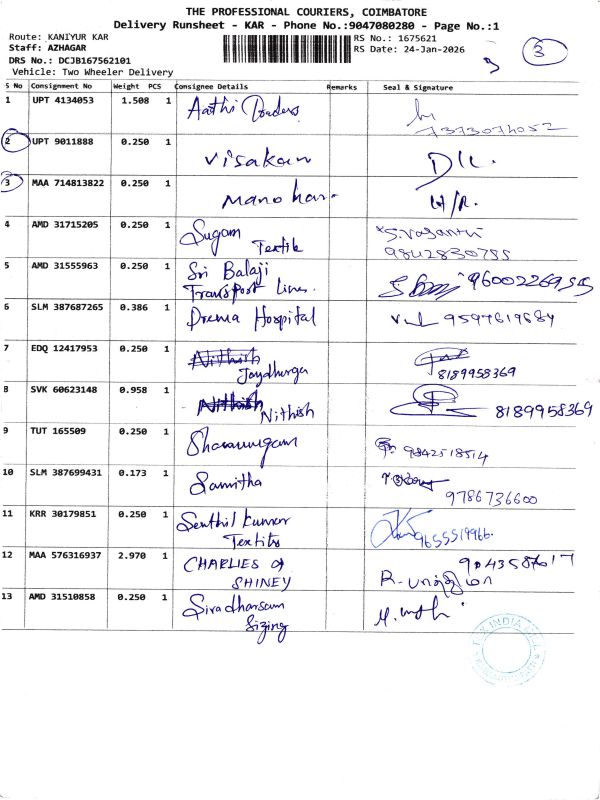 THE PROFESSIONAL COURIERS, COIMBATORE
Delivery Runsheet - KAR - Phone No.:9047080280 - Page No.:1
Route: KANIYUR KAR
RS No.: 1675621
3
Staff: AZHAGAR
RS Date: 24-Jan-2026
DRS No.: DCJB167562101
Vehicle: Two Wheeler Delivery
S No Consignment No Weight PCS Consignee Details Remarks Seal & Signature
1 UPT 4134053 1.508 1 Aathi Traders
7373074052
2 UPT 9011888 0.250 1 Visakan
3 MAA 714813822 0.250 1 Manohar H/R.
4 AMD 31715205 0.250 1 Sugam S.Vasanthi
Textile 9842830755
5 AMD 31555963 0.250 1 Sri Balaji
Transport Lines
6 SLM 387687265 0.386 1 Prema Hospital 9597619684
7 EDQ 12417953 0.250 1 Nithish
Jaydhurga 8189958369
8 SVK 60623148 0.958 1 Nithish
Nithish 8189958369
9 TUT 165509 0.250 1 Shanmugam 9842518514
10 SLM 387699431 0.173 1 Samitha
9786736600
11 KRR 30179851 0.250 1 Senthil Kumar
Textiles 9655519966
12 MAA 576316937 2.970 1 CHARLIES of
SHINEY R-
13 AMD 31510858 0.250 1 Sivadharsam
Sizing
INDIA